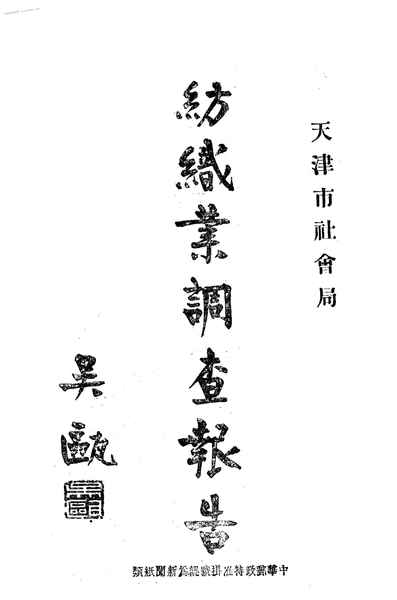 天津市社會局
紡織業調查報告
吳甌
中華郵政特准掛號認為新聞紙類